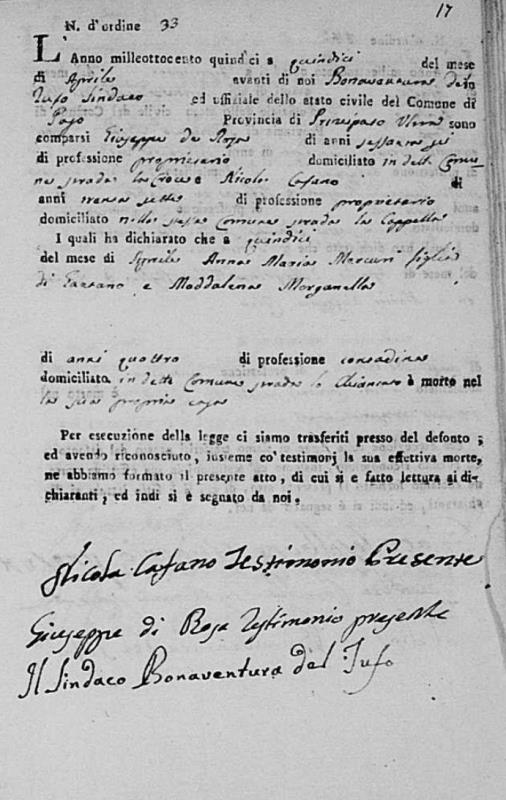 17
N. d'ordine 33
L'Anno milleottocento quindici a quindici del mese
di Aprile avanti di noi Bonaventura del
Tufo Sindaco ed uffiziale dello stato civile del Comune di
Pago Provincia di Principato Ultra sono
comparsi Giuseppe de Rosa di anni sessanta sei
di professione proprietario domiciliato in detto Comu-
ne strada la Croce e Nicola Cafano di
anni trenta sette di professione proprietario
domiciliato nella stessa Comune strada la Cappella
I quali ha dichiarato che a quindici
del mese di Aprile Anna Maria Mercuri figlia
di Gaetano e Maddalena Morganella
di anni quattro di professione contadina
domiciliata in detto Comune strada lo è morto nel
la sua propria casa
Per esecuzione della legge ci siamo trasferiti presso del defonto;
ed avendo riconosciuto, insieme co' testimonj la sua effettiva morte,
ne abbiamo formato il presente atto, di cui si e fatto lettura ai di-
chiaranti, ed indi si è segnato da noi.
Nicola Cafano Testimonio Presente
Giuseppe di Rosa Testimonio presente
Il Sindaco Bonaventura del Tufo